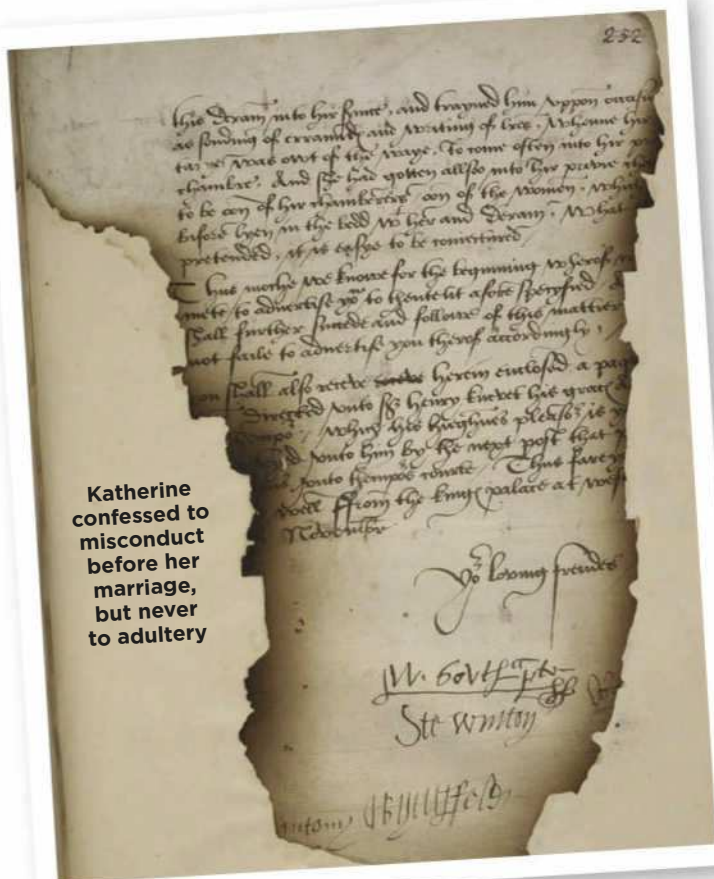 232
this Deram into hir, and trayned him uppon
as sending of and writing of lres, whenne hir
was owt of the waye, To come often into hir
chambre. And she had gotten allso into hir privie
to be oon of hir chamberers oon of the women, which
before lyen in the bedd wt her and Deram. What
pretended, it is easye to be coniectured
Thus moche we knowe for the begynning wherof
mete to advertise yow to thentent afore specyfied
shall further succede and followe of this mattier
not faile to advertise you therof accordingly.
shall also receve herein enclosed a
directed unto Sr Henry Knevet his graces
which his hieghnes pleasr is
unto him by the next post that
unto themprs courte. Thus fare
well. From the kinges palace at
Novembre
Yor loving frendes
W. Southampton
Ste Winton
Antony
Katherine
confessed to
misconduct
before her
marriage,
but never
to adultery